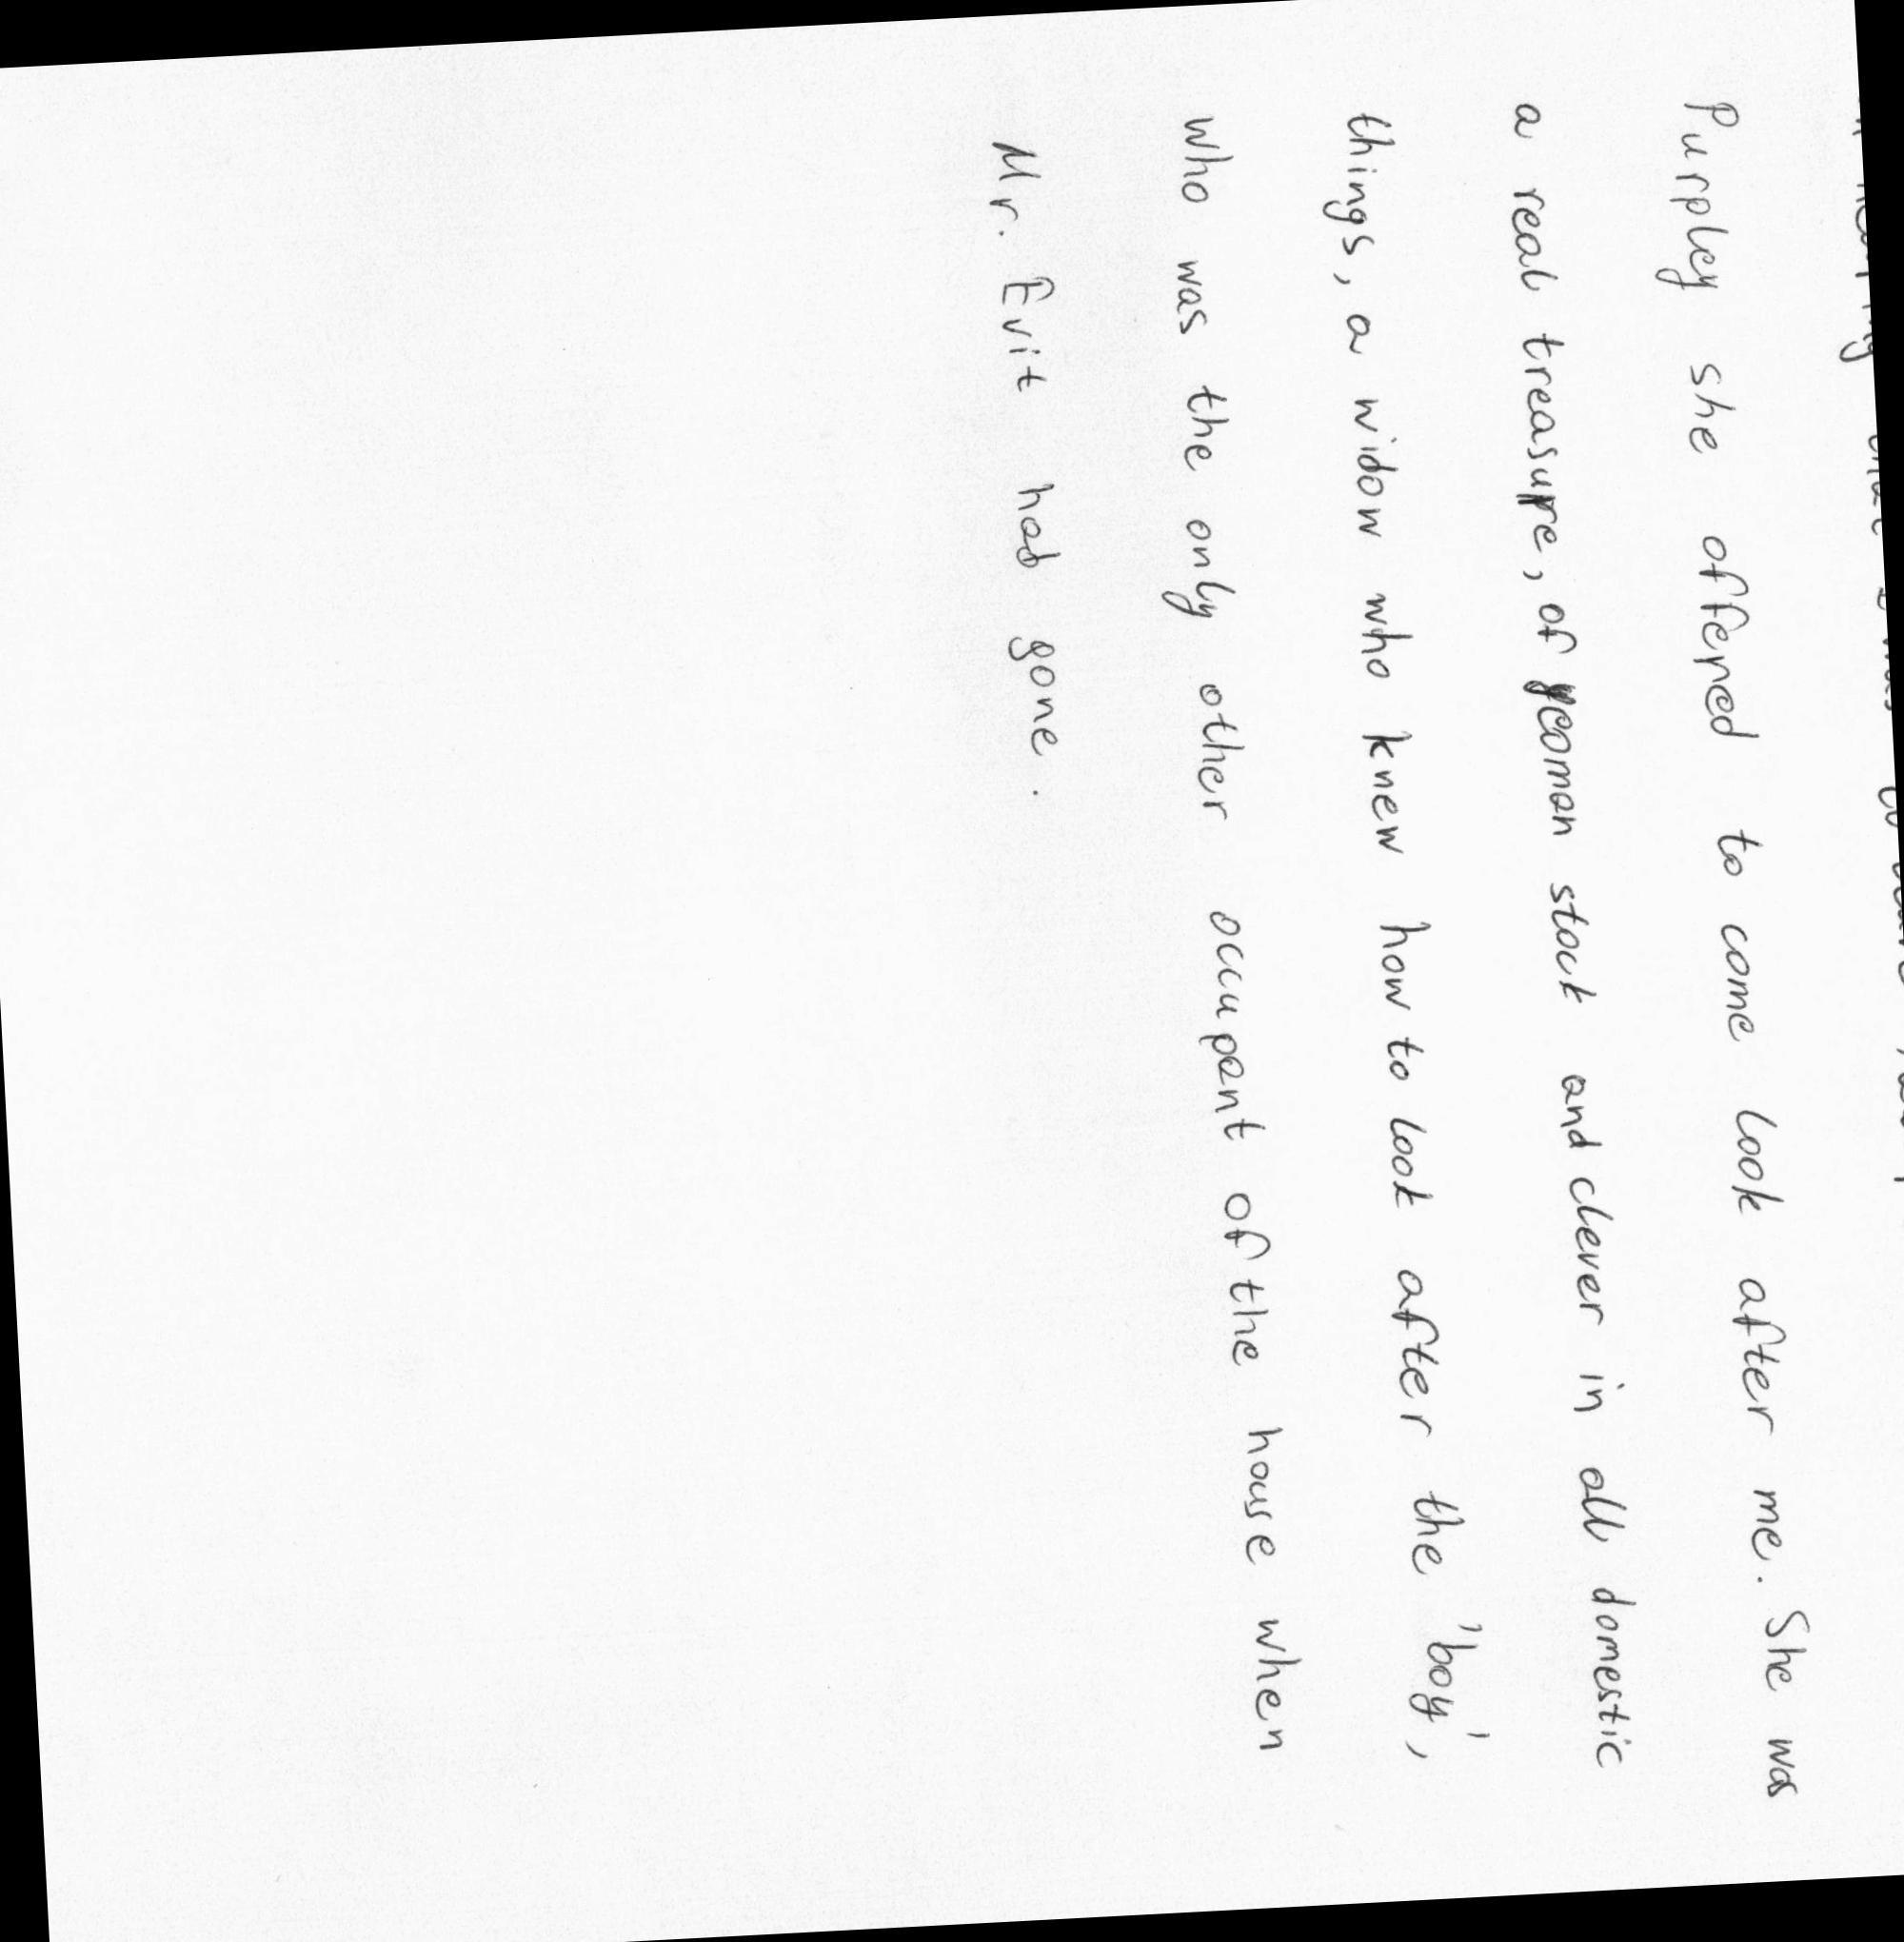 Purpley she offered to come look after me. She was
a real treasure, of yeoman stock and clever in all domestic
things, a widow who knew how to look after the 'boy',
who was the only other occupant of the house when
Mr. Evit had gone.